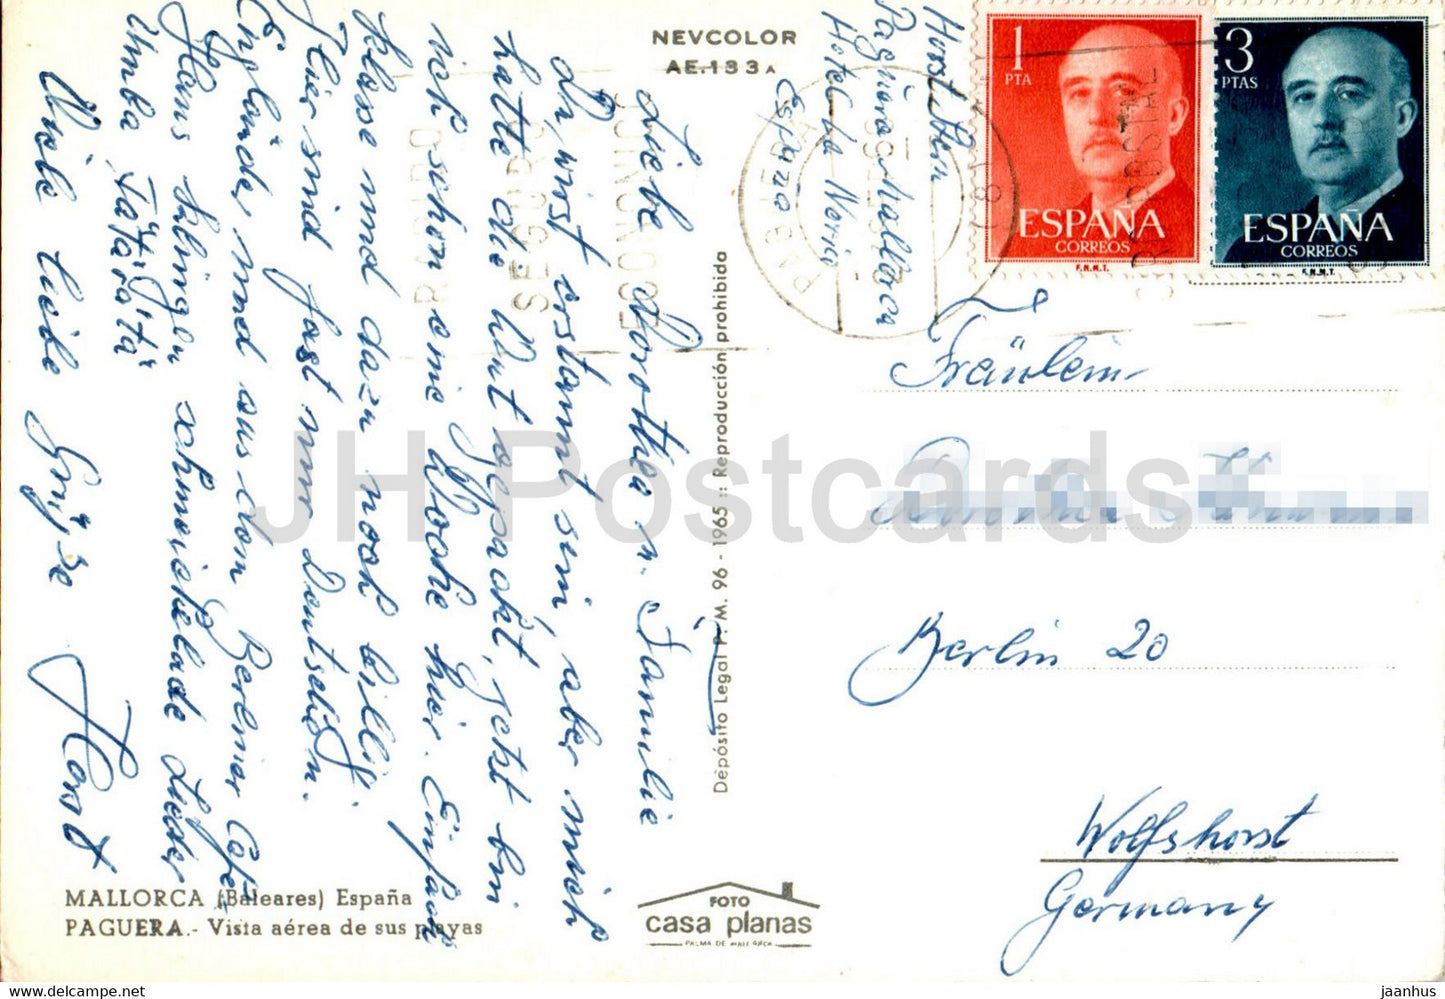 NEVCOLOR
AE.133A
Horst Bern
Paguera Mallorca
Hotel La Noria
España
Liebe Dorothea u. Familie
Du wirst erstaunt sein, aber mich
hatte die Wut gepackt, jetzt bin
ich schon eine Woche hier. Einfach
klasse und dazu noch billig.
Hier sind fast nur Deutsche u.
Engländer, und aus dem Berliner Cafe
Haus klingen schmissige Lieder
Umba Tätärä tä
tätärä
Viele liebe Grüße
Horst
1
PTA
ESPAÑA
CORREOS
F.N.M.T.
3
PTAS
ESPAÑA
CORREOS
F.N.M.T.
Fräulein
Berlin 20
Wolfshorst
Germany
Depósito Legal P. M. 96 - 1965 :: Reproducción prohibida
MALLORCA (Baleares) España
PAGUERA.- Vista aérea de sus playas
FOTO
casa planas
PALMA DE MALLORCA
JH Postcards
https://jhpostcards.com
jaanhus